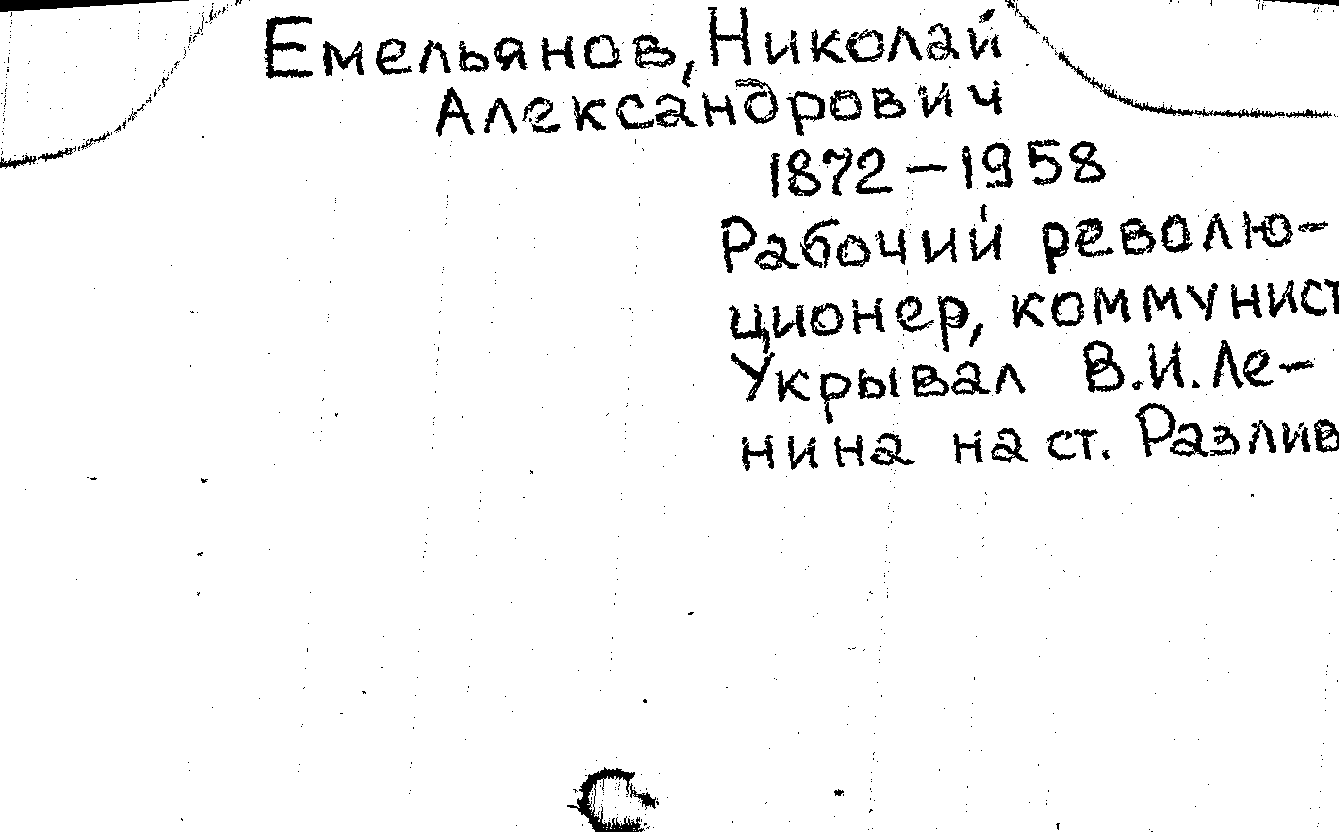 Емельянов, Николай
Александрович
1872 – 1958
Рабочий револю-
ционер, коммунист
Укрывал В.И.Ле-
нина на ст. Разлив